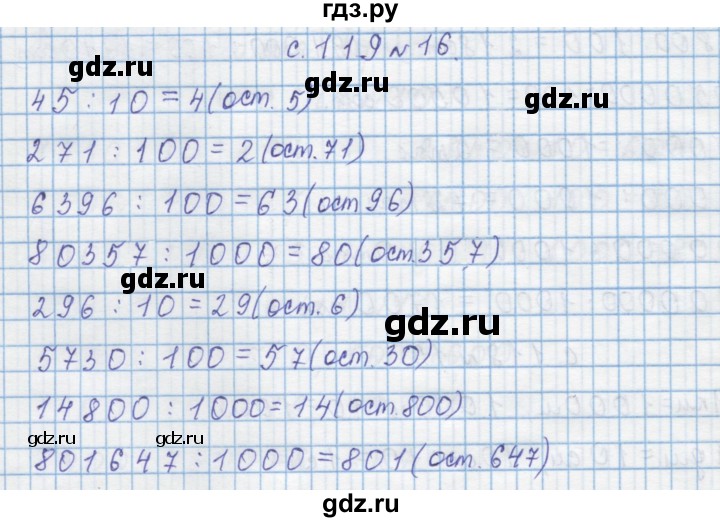 гдз.ру
с. 119 № 16.
gdz.ru
gdz.ru
45 : 10 = 4 (ост. 5)
gdz.ru
271 : 100 = 2 (ост. 71)
gdz.ru
6396 : 100 = 63 (ост 96)
80357 : 1000 = 80 (ост. 357)
gdz.ru
296 : 10 = 29 (ост. 6)
gdz.ru
5730 : 100 = 57 (ост. 30)
gdz.ru
14800 : 1000 = 14 (ост. 800)
gdz.ru gdz.ru gdz.ru
801647 : 1000 = 801 (ост. 647)
gdz.ru